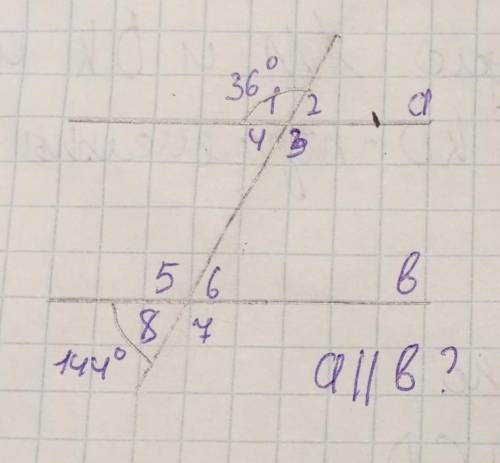 36°
1 2 a
4 3
5 6 в
8 7
144°
a || в ?